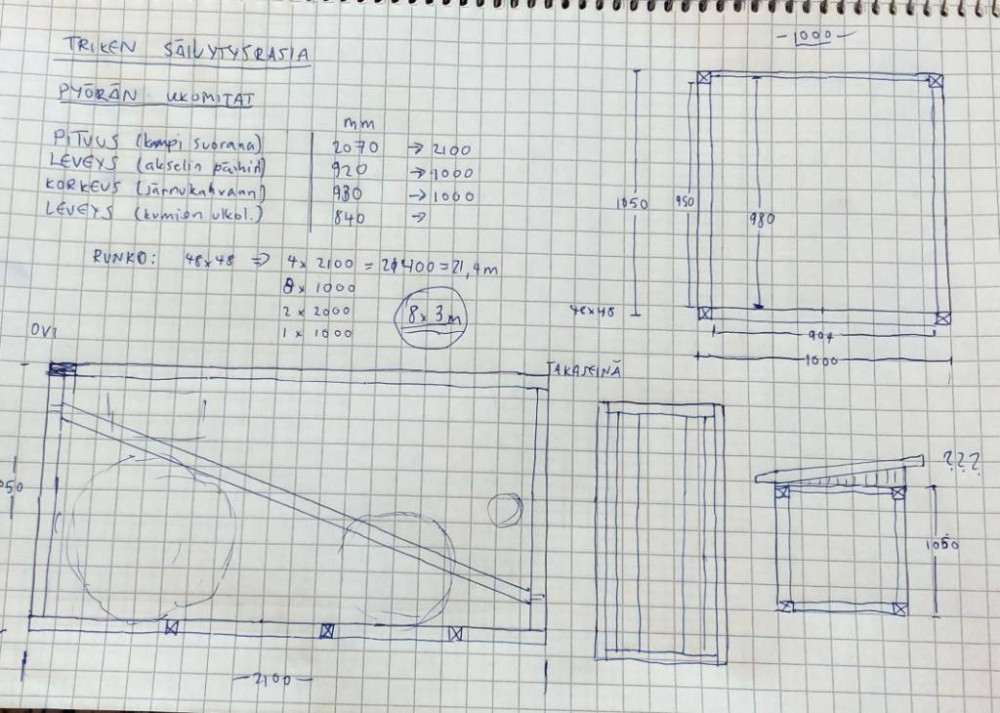 TRIKEN SÄILYTYSRASIA
PYÖRÄN ULKOMITAT
mm
PITUUS (kampi suorana) 2070 → 2100
LEVEYS (akselin päihin) 920 → 1000
KORKEUS (jarrukahvaan) 980 → 1000
LEVEYS (kumien ulkol.) 840 →
RUNKO: 48x48 ⇒ 4 x 2100 = 21400 = 21,4m
8 x 1000
2 x 2000
1 x 1000
8 x 3m
-1000-
1050
950
980
48x48
904
1000
OVI
TAKASEINÄ
050
-2100-
???
1050